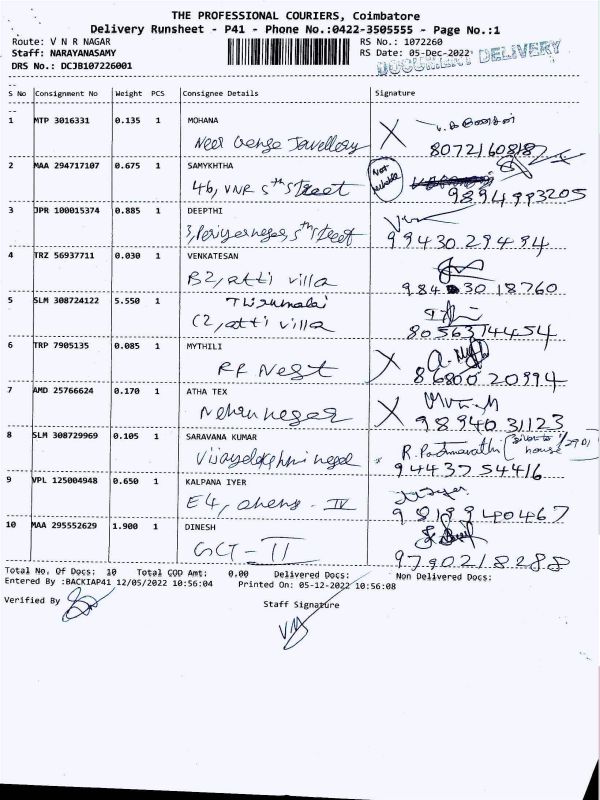 THE PROFESSIONAL COURIERS, Coimbatore
Delivery Runsheet - P41 - Phone No.:0422-3505555 - Page No.:1
Route: V N R NAGAR
RS No.: 1072260
Staff: NARAYANASAMY
RS Date: 05-Dec-2022
DOCUMENT DELIVERY
DRS No.: DCJB107226001
S No Consignment No Weight PCS Consignee Details Signature
1 MTP 3016331 0.135 1 MOHANA
8072160818
2 MAA 294717107 0.675 1 SAMYKHTHA
46, VNR 5th Street
9894993205
3 JPR 100015374 0.885 1 DEEPTHI
3, Periyarnagar, 5th Street
9943029494
4 TRZ 56937711 0.030 1 VENKATESAN
B2, atti villa
984 30 18760
5 SLM 308724122 5.550 1 Thirumalai
C2, atti villa
8056374454
6 TRP 7905135 0.085 1 MYTHILI
RR Nest
8680020994
7 AMD 25766624 0.170 1 ATHA TEX
Nehru nagar
9894031123
8 SLM 308729969 0.105 1 SARAVANA KUMAR
Vijayalakshmi nagar
R. Padmavathi
house
9443754416
9 VPL 125004948 0.650 1 KALPANA IYER
E4, - IV
9819940467
10 MAA 295552629 1.900 1 DINESH
GCT - II
9790218288
Total No. Of Docs: 10 Total COD Amt: 0.00 Delivered Docs: Non Delivered Docs:
Entered By :BACKIAP41 12/05/2022 10:56:04 Printed On: 05-12-2022 10:56:08
Verified By
Staff Signature